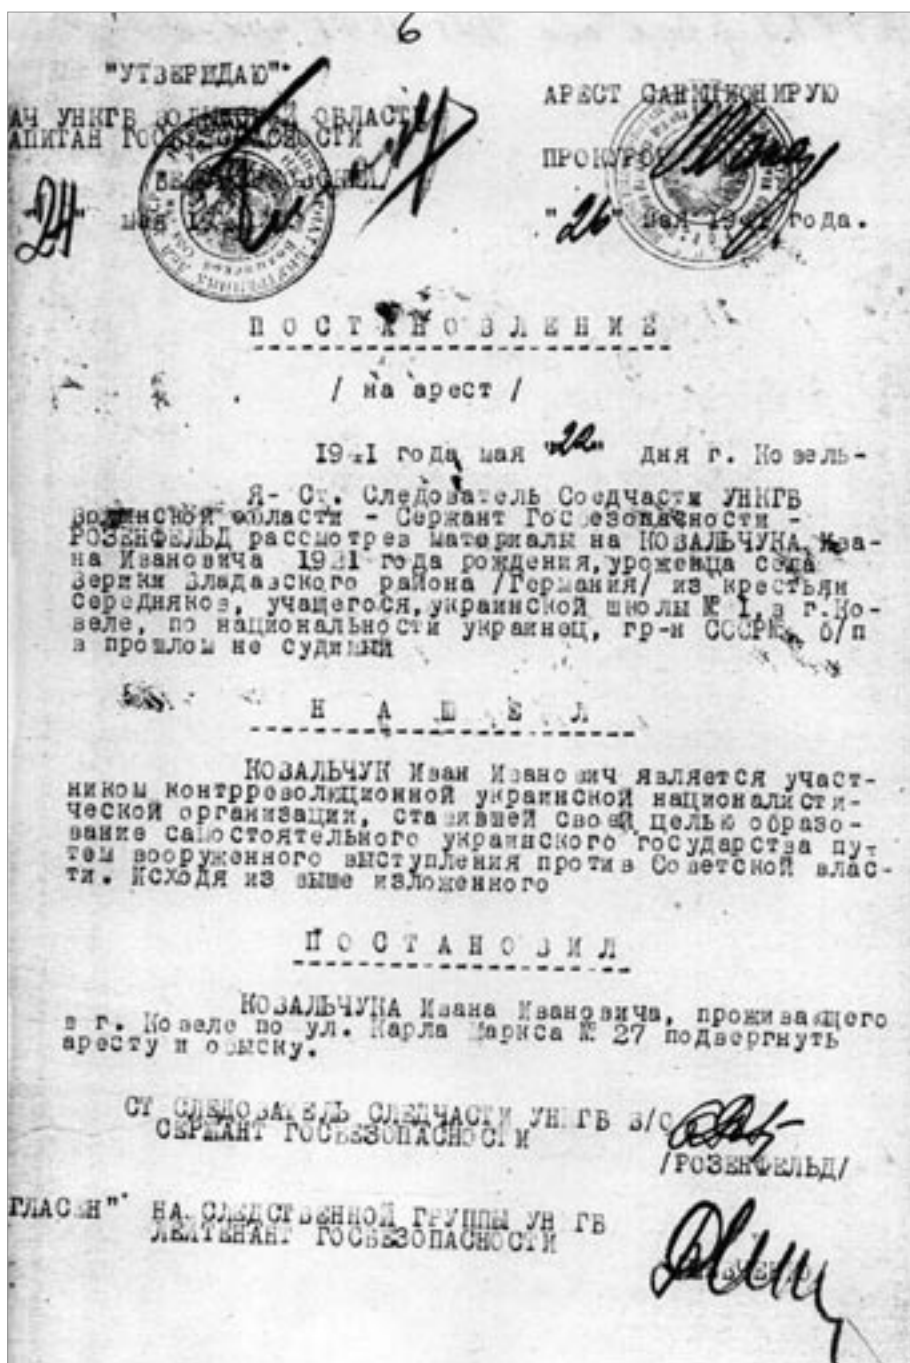 6
"УТВЕРЖДАЮ"
АЧ УНКГВ ВОЛЫНСКОЙ ОБЛАСТИ
АПИТАН ГОСБЕЗОПАСНОСТИ
"24" мая
АРЕСТ САНКЦИОНИРУЮ
ПРОКУРОР
"26" мая 1941 года.
ПОСТАНОВЛЕНИЕ
/ на арест /
1941 года мая "22" дня г. Ковель-
Я- Ст. Следователь Следчасти УНКГВ
Волынской области - Сержант Госбезопасности -
РОЗЕНФЕЛЬД рассмотрев материалы на КОВАЛЬЧУКА Ива-
на Ивановича 1921 года рождения, уроженца села
Верики Владавского района /Германия/ из крестьян
середняков, учащегося, украинской школы № 1, в г.Ко-
веле, по национальности украинец, гр-н СССР, б/п
в прошлом не судимый
НАШЕЛ
КОВАЛЬЧУК Иван Иванович является участ-
ником контрреволюционной украинской националисти-
ческой организации, ставившей своей целью образо-
вание самостоятельного украинского государства пут
тем вооруженного выступления против Советской влас-
ти. Исходя из выше изложенного
ПОСТАНОВИЛ
КОВАЛЬЧУКА Ивана Ивановича, проживающего
в г. Ковеле по ул. Карла Маркса № 27 подвергнуть
аресту и обыску.
СТ СЛЕДОВАТЕЛЬ СЛЕДЧАСТИ УНКГВ В/О
СЕРЖАНТ ГОСБЕЗОПАСНОСТИ
/РОЗЕНФЕЛЬД/
ГЛАСЕН" НА СЛЕДСТВЕННОЙ ГРУППЫ УНКГВ
ЛЕЙТЕНАНТ ГОСБЕЗОПАСНОСТИ